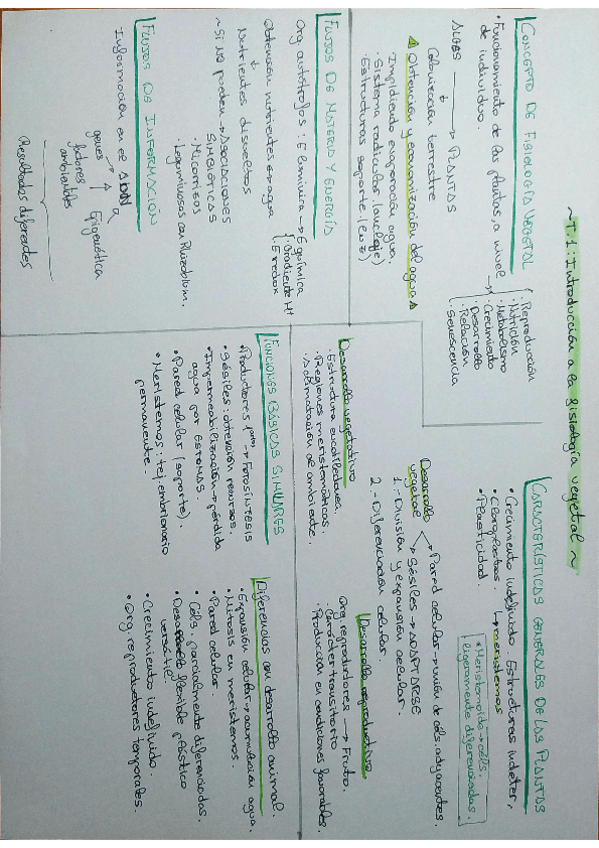 ~T.1: Introducción a la fisiología vegetal~
CONCEPTO DE FISIOLOGÍA VEGETAL
• Funcionamiento de las plantas, a nivel
de individuo.
· Reproducción
· Nutrición
· Metabolismo
· Crecimiento
· Desarrollo
· Relación
· Senescencia
ALGAS → PLANTAS
↓
Colonización terrestre
⚠ Obtención y economización del agua ⚠
· Impidiendo evaporación agua.
· Sistema radicular. (anclaje)
· Estructuras soporte.
FLUJOS DE MATERIA Y ENERGÍA
Org autótrofos: E lumínica → E química
· Gradiente H+
· E redox
Obtención nutrientes en agua
↓
Nutrientes disueltos
~ Si no pueden → ASOCIACIONES
SIMBIÓTICAS
· Micorrizas
· Leguminosas con Rhizobium.
FLUJOS DE INFORMACIÓN
Información en el ADN
genes → Epigenética
factores
ambientales
Resultados diferentes
CARACTERÍSTICAS GENERALES DE LAS PLANTAS
• Crecimiento indefinido. Estructuras indeter,
• Cloroplastos. ↳ meristemos
• Plasticidad.
• Meristemoide → céls.
ligeramente diferenciadas
Desarrollo
vegetal
→ Pared celular → unión de céls. adyacentes.
→ Sésiles → ADAPTARSE
1.- División y expansión celular.
2.- Diferenciación celular.
Desarrollo vegetativo
· Estructura eucotiledónea
· Regiones meristemáticas.
· Aclimatación al ambiente.
Desarrollo reproductivo
Org. reproductores → Fruto.
· Carácter transitorio
· Producción en condiciones favorables.
FUNCIONES BÁSICAS SIMILARES
• Productores → Fotosíntesis
• Sésiles: obtención recursos.
• Impermeabilización → pérdida
agua por estomas.
• Pared celular (soporte).
• Meristemos: tej. embrionario
permanente.
Diferencias con desarrollo animal.
• Expansión celular → acumulación agua.
• Mitosis en meristemos.
• Pared celular.
• Céls. parcialmente diferenciadas.
• Desarrollo flexible plástico
versátil
• Crecimiento indefinido.
• Org. reproductores temporales.